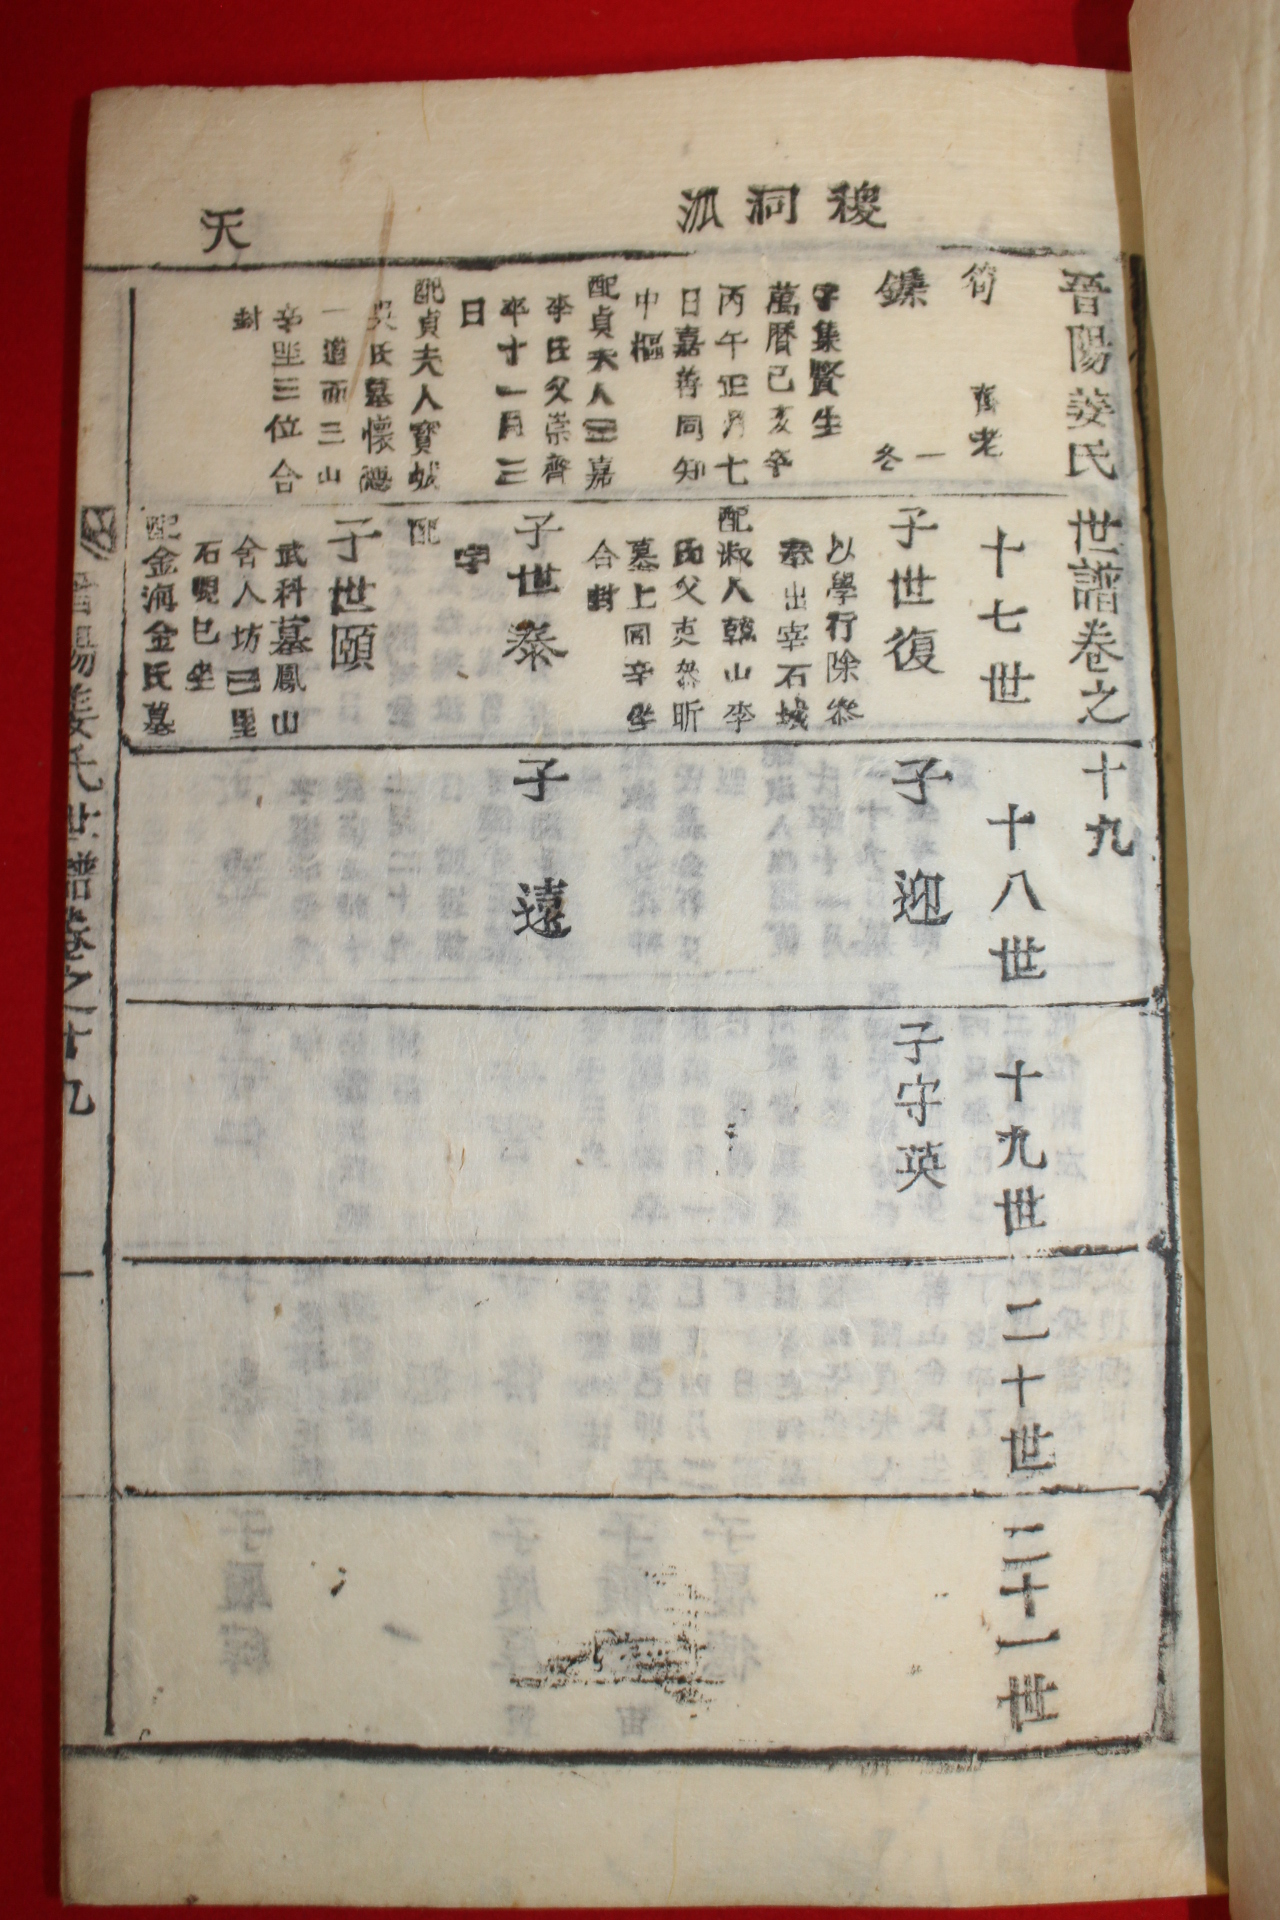 稷洞派
天
晉陽姜氏世譜卷之十九
筍 舊老
十七世
十八世
十九世
二十世
二十一世
鏶 一冬
字集賢生
萬曆己亥卒
丙午正月七
日嘉善同知
中樞
配貞夫人全嘉
李氏父崇齊
卒十一月三
日
配貞夫人寶城
吳氏墓懷德
一道面三山
辛坐三位合
封
子世復
以學行除參
奉出宰石城
配淑人韓山李
氏父吏參昕
墓上同辛坐
合封
子世泰
字
配
子世頤
武科墓鳳山
舍人坊三里
石峴巳坐
配金海金氏墓
子迎
子遠
子守英
晉陽姜氏世譜卷之十九
一